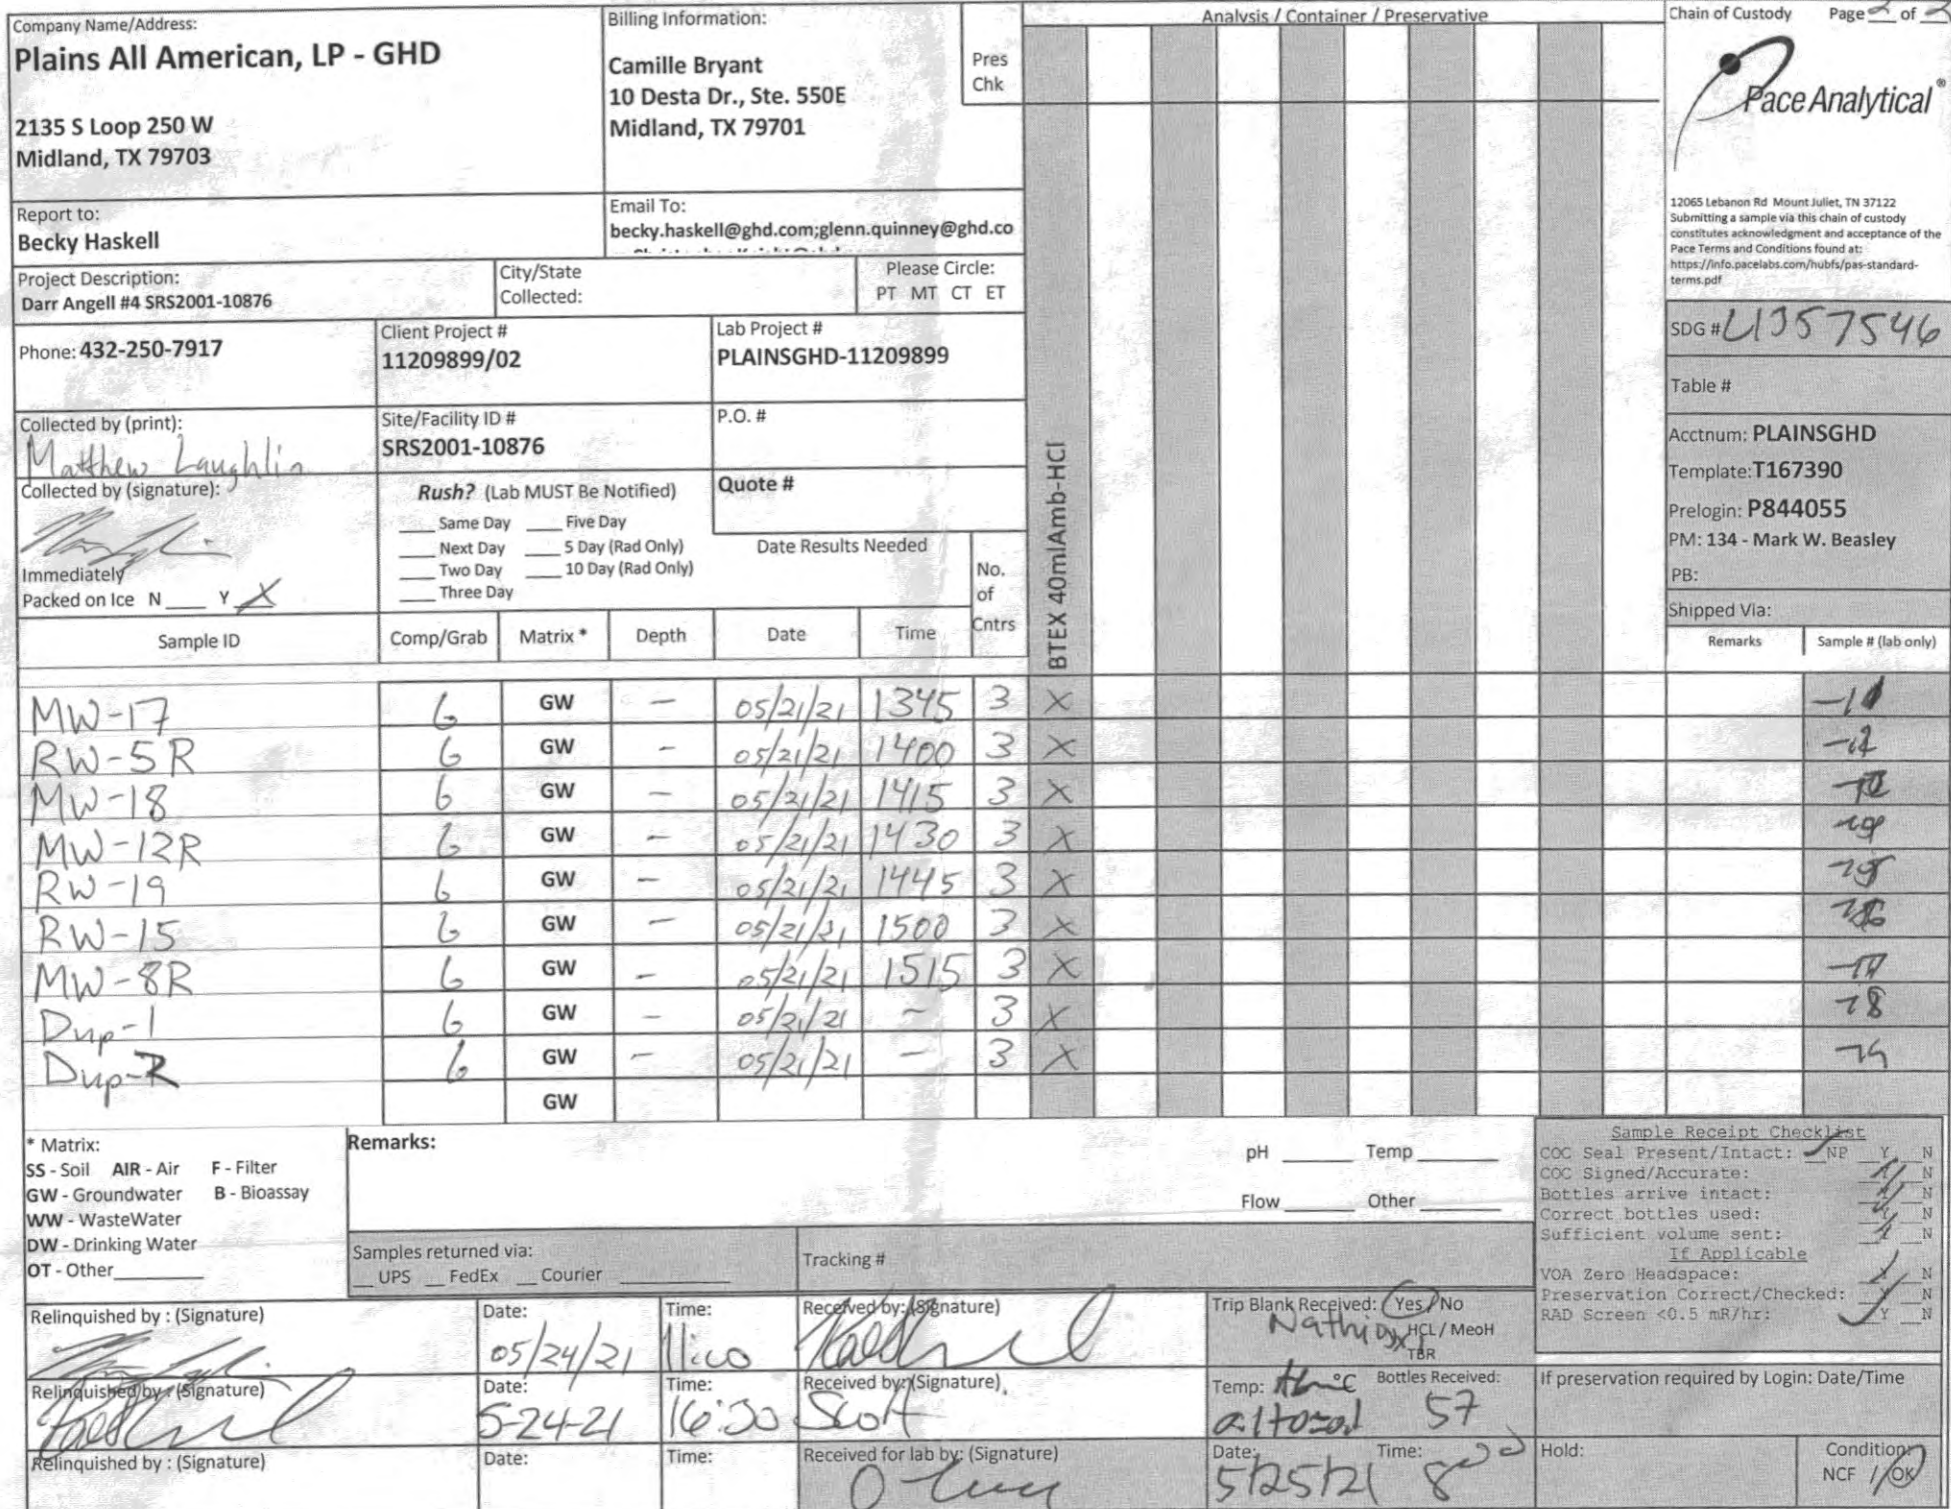 Company Name/Address:
Plains All American, LP - GHD
2135 S Loop 250 W
Midland, TX 79703
Billing Information:
Camille Bryant
10 Desta Dr., Ste. 550E
Midland, TX 79701
Pres
Chk
Analysis / Container / Preservative
Chain of Custody Page of
Pace Analytical®
12065 Lebanon Rd Mount Juliet, TN 37122
Submitting a sample via this chain of custody
constitutes acknowledgment and acceptance of the
Pace Terms and Conditions found at:
https://info.pacelabs.com/hubfs/pas-standard-
terms.pdf
Report to:
Becky Haskell
Email To:
becky.haskell@ghd.com;glenn.quinney@ghd.co
Project Description:
Darr Angell #4 SRS2001-10876
City/State
Collected:
Please Circle:
PT MT CT ET
SDG # L1357546
Phone: 432-250-7917
Client Project #
11209899/02
Lab Project #
PLAINSGHD-11209899
Table #
Collected by (print):
Matthew Laughlin
Site/Facility ID #
SRS2001-10876
P.O. #
Acctnum: PLAINSGHD
Template: T167390
Prelogin: P844055
PM: 134 - Mark W. Beasley
PB:
Collected by (signature):
Rush? (Lab MUST Be Notified)
___ Same Day ___ Five Day
___ Next Day ___ 5 Day (Rad Only)
___ Two Day ___ 10 Day (Rad Only)
___ Three Day
Quote #
Date Results Needed
No.
of
Cntrs
BTEX 40mlAmb-HCl
Immediately
Packed on Ice N ___ Y X
Shipped Via:
Sample ID Comp/Grab Matrix * Depth Date Time Remarks Sample # (lab only)
MW-17 G GW — 05/21/21 1345 3 X -11
RW-5R G GW — 05/21/21 1400 3 X -12
MW-18 G GW — 05/21/21 1415 3 X
MW-12R G GW — 05/21/21 1430 3 X
RW-19 G GW — 05/21/21 1445 3 X
RW-15 G GW — 05/21/21 1500 3 X
MW-8R G GW — 05/21/21 1515 3 X -17
Dup-1 G GW — 05/21/21 — 3 X -18
Dup-2 G GW — 05/21/21 — 3 X -19
GW
* Matrix:
SS - Soil AIR - Air F - Filter
GW - Groundwater B - Bioassay
WW - WasteWater
DW - Drinking Water
OT - Other
Remarks:
pH ___ Temp ___
Flow ___ Other ___
Samples returned via:
__ UPS __ FedEx __ Courier
Tracking #
Sample Receipt Checklist
COC Seal Present/Intact: NP Y N
COC Signed/Accurate: Y N
Bottles arrive intact: Y N
Correct bottles used: Y N
Sufficient volume sent: Y N
If Applicable
VOA Zero Headspace: Y N
Preservation Correct/Checked: Y N
RAD Screen <0.5 mR/hr: Y N
Relinquished by : (Signature)
Date:
05/24/21
Time:
Received by: (Signature)
Trip Blank Received: Yes / No
HCL / MeoH
TBR
Relinquished by : (Signature)
Date:
5-24-21
Time:
16:30
Received by: (Signature)
Scott
Temp: °C Bottles Received:
57
If preservation required by Login: Date/Time
Relinquished by : (Signature)
Date:
Time:
Received for lab by: (Signature)
Date:
5/25/21
Time:
800
Hold:
Condition:
NCF / OK